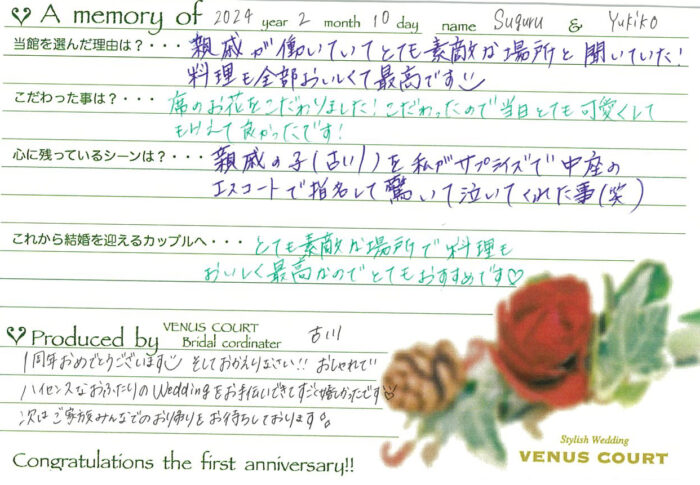 A memory of 2024 year 2 month 10 day name Suguru & Yukiko
当館を選んだ理由は？・・・親戚が働いていてとても素敵な場所と聞いていた!
料理も全部おいしくて最高です
こだわった事は？・・・席のお花をこだわりました!こだわったので当日とても可愛くして
もらえて良かったです!
心に残っているシーンは？・・・親戚の子(古川)を私がサプライズで中座の
エスコートで指名して驚いて泣いてくれた事(笑)
これから結婚を迎えるカップルへ・・・とても素敵な場所で料理も
おいしく最高なのでとてもおすすめです♡
Produced by VENUS COURT Bridal cordinater 古川
1周年おめでとうございます そしておかえりなさい!! おしゃれで
ハイセンスなおふたりのWeddingをお手伝いできてすごく嬉しかったです
次はご家族みんなでのお帰りをお待ちしております。
Congratulations the first anniversary!!
Stylish Wedding
VENUS COURT